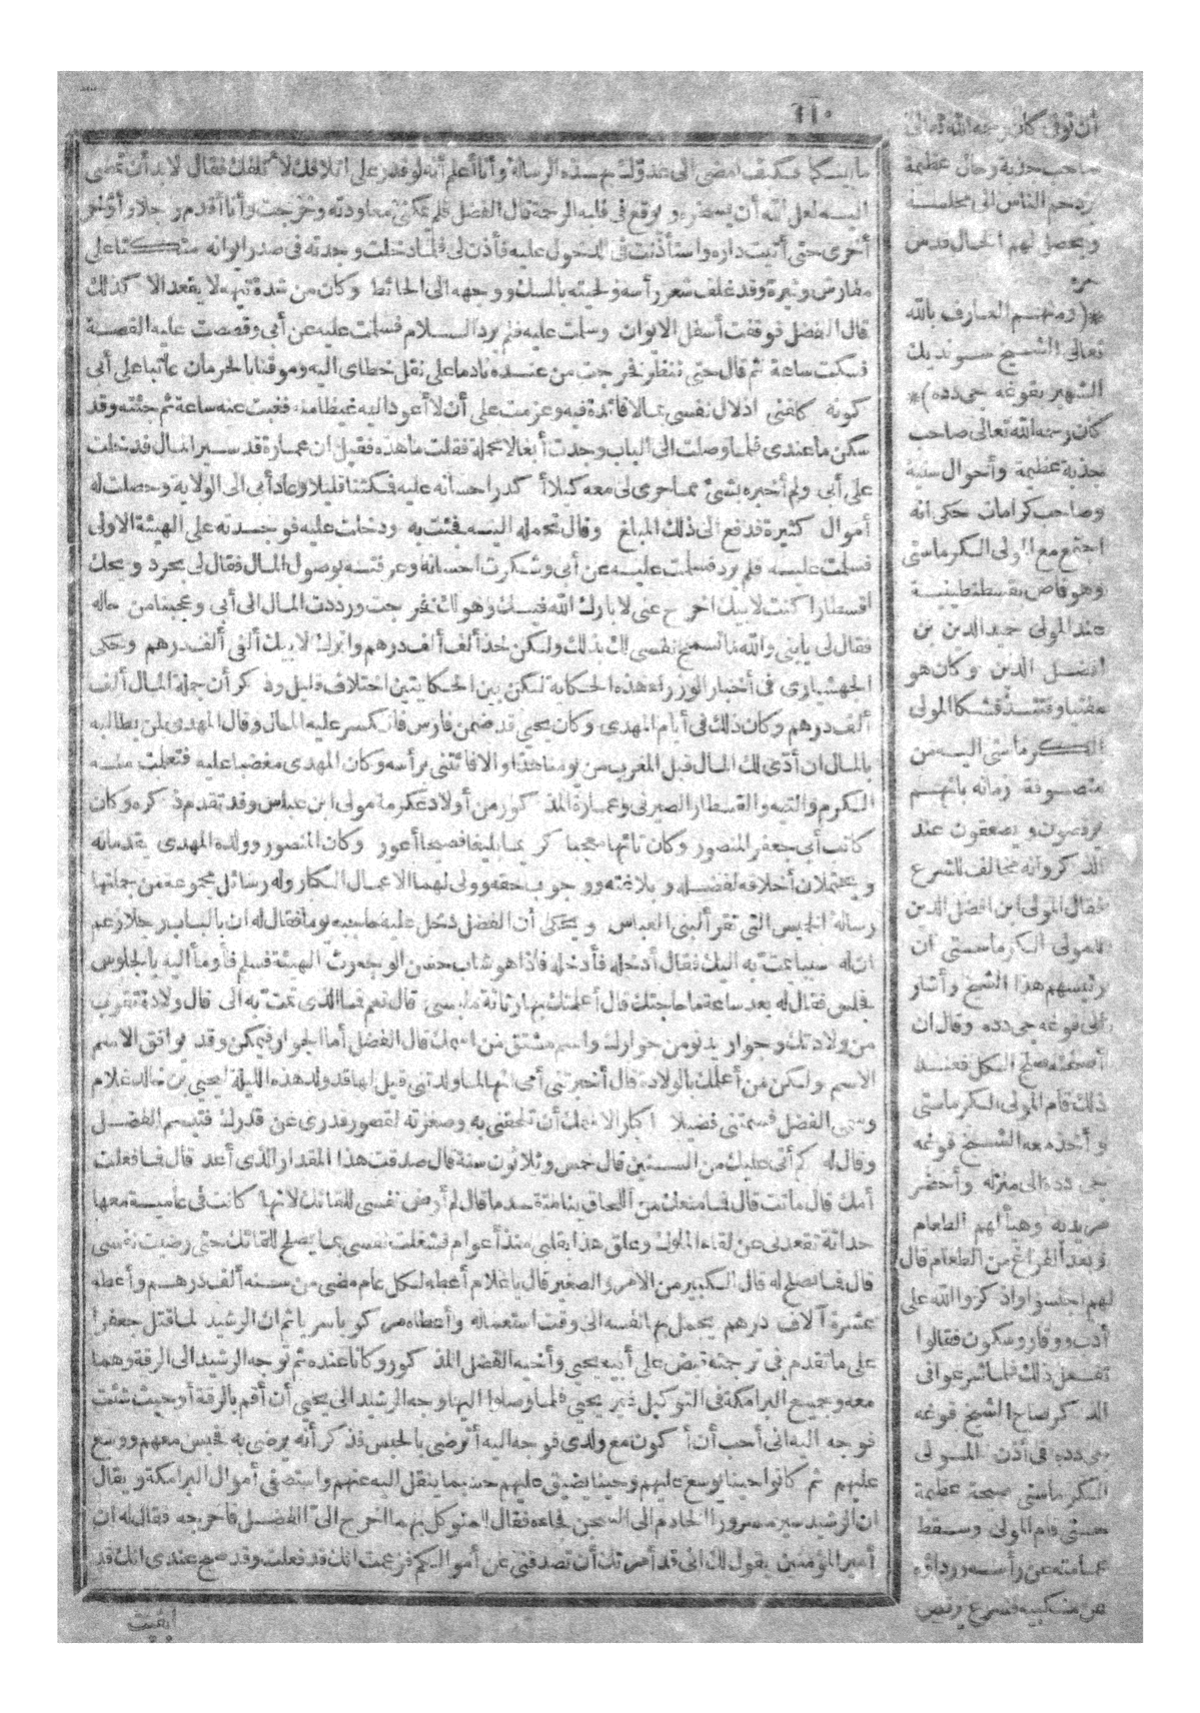 ٦١٠
ما بينكما فكيف أمضى الى عدوك بهذه الرسالة وأنا أعلم أنه لو قدر على اتلافك لأتلفك فقال لا بد أن تمضى
اليه لعل الله أن يسخره ويوقع فى قلبه الرحمة قال الفضل فلم يمكنى معاودته وخرجت وأنا أقدم رجلا وأؤخر
أخرى حتى أتيت داره واستأذنت فى الدخول عليه فأذن لى فلما دخلت وجدته فى صدر ايوانه متكئا على
مفارش وثيرة وقد غلف شعر رأسه ولحيته بالمسك ووجهه الى الحائط وكان من شدة تيهه لا يقعد الا كذلك
قال الفضل فوقفت أسفل الايوان وسلمت عليه فلم يرد السلام فسلمت عليه عن أبى وقصصت عليه القصة
فسكت ساعة ثم قال حتى ننظر فخرجت من عنده نادما على نقل خطاى اليه وموقنا بالحرمان عاتبا على أبى
كونه كلفنى اذلال نفسى بما لا فائدة فيه وعزمت على أن لا أعود اليه غيظا منه فغبت عنه ساعة ثم جئته وقد
سكن ما عندى فلما وصلت الى الباب وجدت أبغالا محملة فقلت ما هذه فقيل ان عمارة قد سير المال فدخلت
على أبى ولم أخبره بشئ مما جرى لى معه كيلا أكدر احسانه عليه فمكثنا قليلا وعاد أبى الى الولاية وحصلت له
أموال كثيرة فدفع الى ذلك المبلغ وقال تحمله اليه فجئت به ودخلت عليه فوجدته على الهيئة الاولى
فسلمت عليه فلم يرد فسلمت عليه عن أبى وشكرت احسانه وعرفته بوصول المال فقال لى بحرد ويحك
أقسطارا كنت لابيك اخرج عنى لا بارك الله فيك وهو لك فخرجت ورددت المال الى أبى وعجبنا من حاله
فقال لى يا بنى والله ما تسمح نفسى لك بذلك ولكن خذ ألف ألف درهم واترك لابيك ألفى ألف درهم وحكى
الجهشيارى فى أخبار الوزراء هذه الحكاية لكن بين الحكايتين اختلاف قليل وذكر أن جملة المال ألف
ألف درهم وكان ذلك فى أيام المهدى وكان يحيى قد ضمن فارس فانكسر عليه المال وقال المهدى لمن يطالبه
بالمال ان أدى لك المال قبل المغرب من يومنا هذا والا فائتنى برأسه وكان المهدى مغضبا عليه فتعلمت منه
الكرم والتيه والقسطار الصيرفى وعمارة المذكور من أولاد عكرمة مولى ابن عباس وقد تقدم ذكره وكان
كاتب أبى جعفر المنصور وكان تائها معجبا كريما بليغا فصيحا أعور وكان المنصور وولده المهدى يقدمانه
ويحتملان أخلاقه لفضله وبلاغته ووجوب حقه وولى لهما الاعمال الكبار وله رسائل مجموعة من جملتها
رسالة الخميس التى تقرأ لبنى العباس ويحكى أن الفضل دخل عليه حاجبه يوما فقال له ان بالباب رجلا زعم
ان له سببا يمت به اليك فقال أدخله فأدخله فاذا هو شاب حسن الوجه رث الهيئة فسلم فأومأ اليه بالجلوس
فجلس فقال له بعد ساعة ما حاجتك قال أعلمتك بها رثاثة ملبسى قال نعم فما الذى تمت به الى قال ولادة تقرب
من ولادتك وجوار يدنو من جوارك واسم مشتق من اسمك قال الفضل أما الجوار فيمكن وقد يوافق الاسم
الاسم ولكن من أعلمك بالولادة قال أخبرتنى أمى انها لما ولدتنى قيل لها قد ولد هذه الليلة ليحيى بن خالد غلام
وسمى الفضل فسمتنى فضيلا اكبارا لاسمك أن تلحقنى به وصغرته لقصور قدرى عن قدرك فتبسم الفضل
وقال له كم أتى عليك من السنين قال خمس وثلاثون سنة قال صدقت هذا المقدار الذى أعد قال فما فعلت
أمك قال ماتت قال فما منعك من اللحاق بنا متقدما قال لم أرض نفسى للقائك لانها كانت فى عامية معها
حداثة تقعدنى عن لقاء الملوك وعلق هذا بقلبى منذ أعوام فشغلت نفسى بما يصلح للقائك حتى رضيت نفسى
قال فما يصلح له قال الكبير من الامر والصغير قال يا غلام أعطه لكل عام مضى من سنه ألف درهم وأعطه
عشرة آلاف درهم يحمل بها نفسه الى وقت استعماله وأعطاه مركوبا سريا ثم ان الرشيد لما قتل جعفرا
على ما تقدم فى ترجمته قبض على أبيه يحيى وأخيه الفضل المذكور وكانا عنده ثم توجه الرشيد الى الرقة وهما
معه وجميع البرامكة فى التوكيل غير يحيى فلما وصلوا اليها وجه الرشيد الى يحيى أن أقم بالرقة أو حيث شئت
فوجه اليه انى أحب أن أكون مع ولدى فوجه اليه أترضى بالحبس فذكر أنه يرضى به فحبس معهم ووسع
عليهم ثم كانوا حينا يوسع عليهم وحينا يضيق عليهم حسبما ينقل اليه عنهم واستصفى أموال البرامكة ويقال
ان الرشيد سير مسرورا الخادم الى السجن فجاءه فقال للمتوكل بهما اخرج الى الفضل فأخرجه فقال له ان
أمير المؤمنين يقول لك انى قد أمرتك أن تصدقنى عن أموالكم فزعمت انك قد فعلت وقد صح عندى انك قد
أبقيت
أن توفى كان رحمه الله تعالى
صاحب جذبة وحال عظيمة
يزدحم الناس الى مجلسه
ويحصل لهم الحال قدس
سره
*(ومنهم العارف بالله
تعالى الشيخ سونديك
الشهير بقوغه جى دده)*
كان رحمه الله تعالى صاحب
جذبة عظيمة وأحوال سنية
وصاحب كرامات حكى انه
اجتمع مع المولى الكرماستى
وهو قاض بقسطنطينية
عند المولى حميد الدين بن
افضل الدين وكان هو
مفتيا وقتئذ فشكا المولى
الكرماستى اليه من
متصوفة زمانه بانهم
يرقصون ويصعقون عند
الذكر وانه مخالف للشرع
فقال المولى ابن افضل الدين
للمولى الكرماستى ان
رئيسهم هذا الشيخ وأشار
الى قوغه جى دده وقال ان
أصلحته صلح الكل فعند
ذلك قام المولى الكرماستى
وأخذ معه الشيخ قوغه
جى دده الى منزله وأحضر
مريديه وهيأ لهم الطعام
وبعد الفراغ من الطعام قال
لهم اجلسوا واذكروا الله على
أدب ووقار وسكون فقالوا
نفعل ذلك فلما شرعوا فى
الذكر صاح الشيخ قوغه
جى دده فى أذن المولى
الكرماستى صيحة عظيمة
حتى قام المولى وسقط
عمامته عن رأسه ورداؤه
عن منكبيه فشرع يرقص